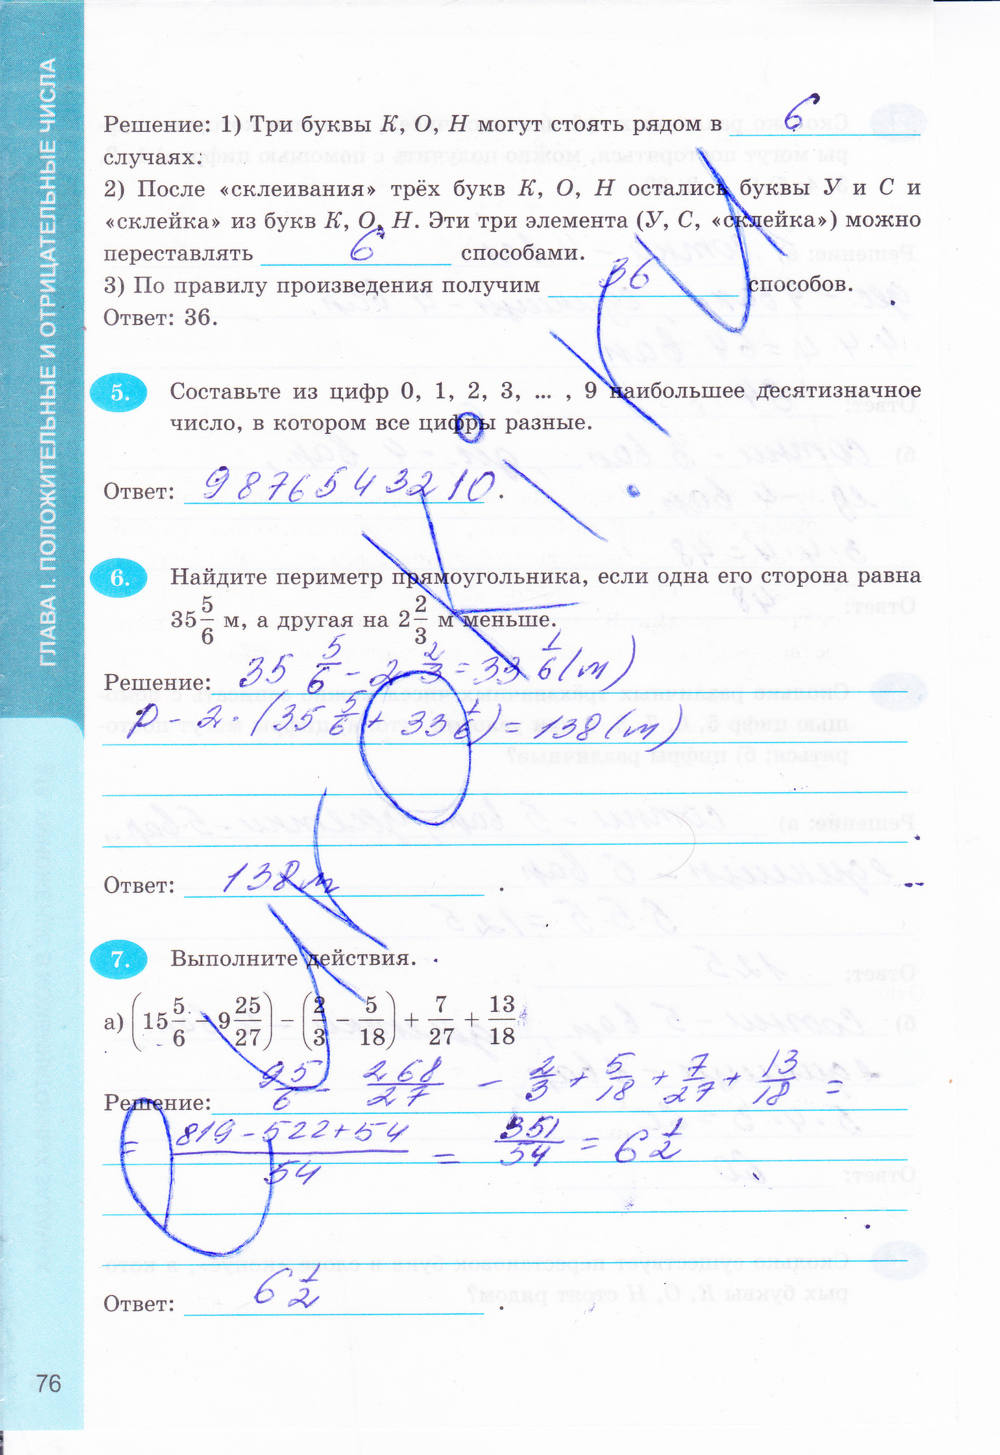 ГЛАВА I. ПОЛОЖИТЕЛЬНЫЕ И ОТРИЦАТЕЛЬНЫЕ ЧИСЛА
Решение: 1) Три буквы К, О, Н могут стоять рядом в 6
случаях.
2) После «склеивания» трёх букв К, О, Н остались буквы У и С и
«склейка» из букв К, О, Н. Эти три элемента (У, С, «склейка») можно
переставлять 6 способами.
3) По правилу произведения получим 36 способов.
Ответ: 36.
5. Составьте из цифр 0, 1, 2, 3, ... , 9 наибольшее десятизначное
число, в котором все цифры разные.
Ответ: 9876543210.
6. Найдите периметр прямоугольника, если одна его сторона равна
35 5/6 м, а другая на 2 2/3 м меньше.
Решение: 35 5/6 - 2 2/3 = 33 1/6 (м)
P - 2 · (35 5/6 + 33 1/6) = 138 (м)
Ответ: 138 м.
7. Выполните действия.
а) (15 5/6 − 9 25/27) − (2/3 − 5/18) + 7/27 + 13/18
Решение: 95/6 - 268/27 - 2/3 + 5/18 + 7/27 + 13/18 =
= 819-522+54/54 = 351/54 = 6 1/2
Ответ: 6 1/2.
76